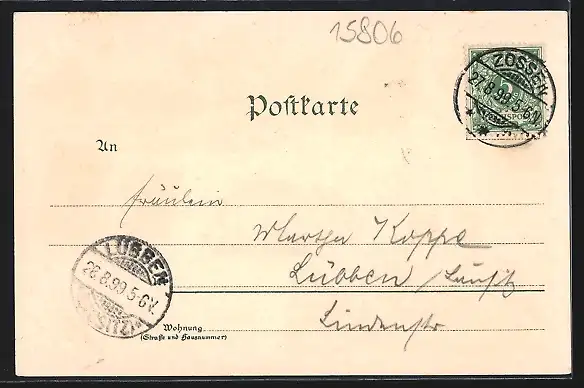 15806
ZOSSEN
27.8.99.5-6N.
5
Postkarte
An
Fräulein
Martha Koppe
Lübben /Lausitz
LÜBBEN
28.8.99.5-6V.
(LAUSITZ)
Lindenstr
Wohnung
(Straße und Hausnummer)